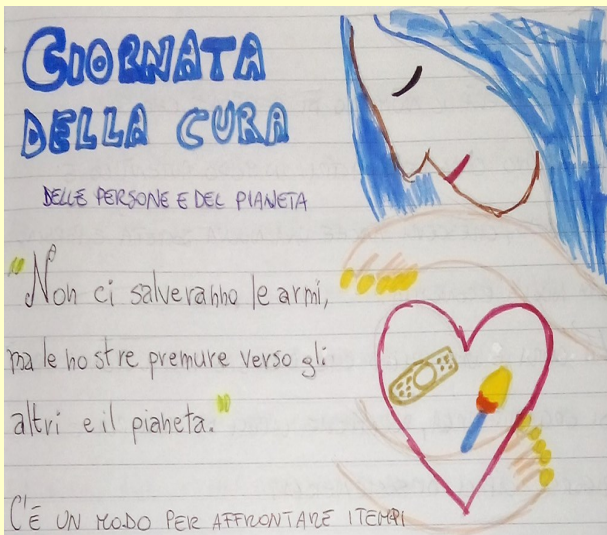 GIORNATA
DELLA CURA
DELLE PERSONE E DEL PIANETA
"Non ci salveranno le armi,
ma le nostre premure verso gli
altri e il pianeta."
C'È UN MODO PER AFFRONTARE I TEMPI